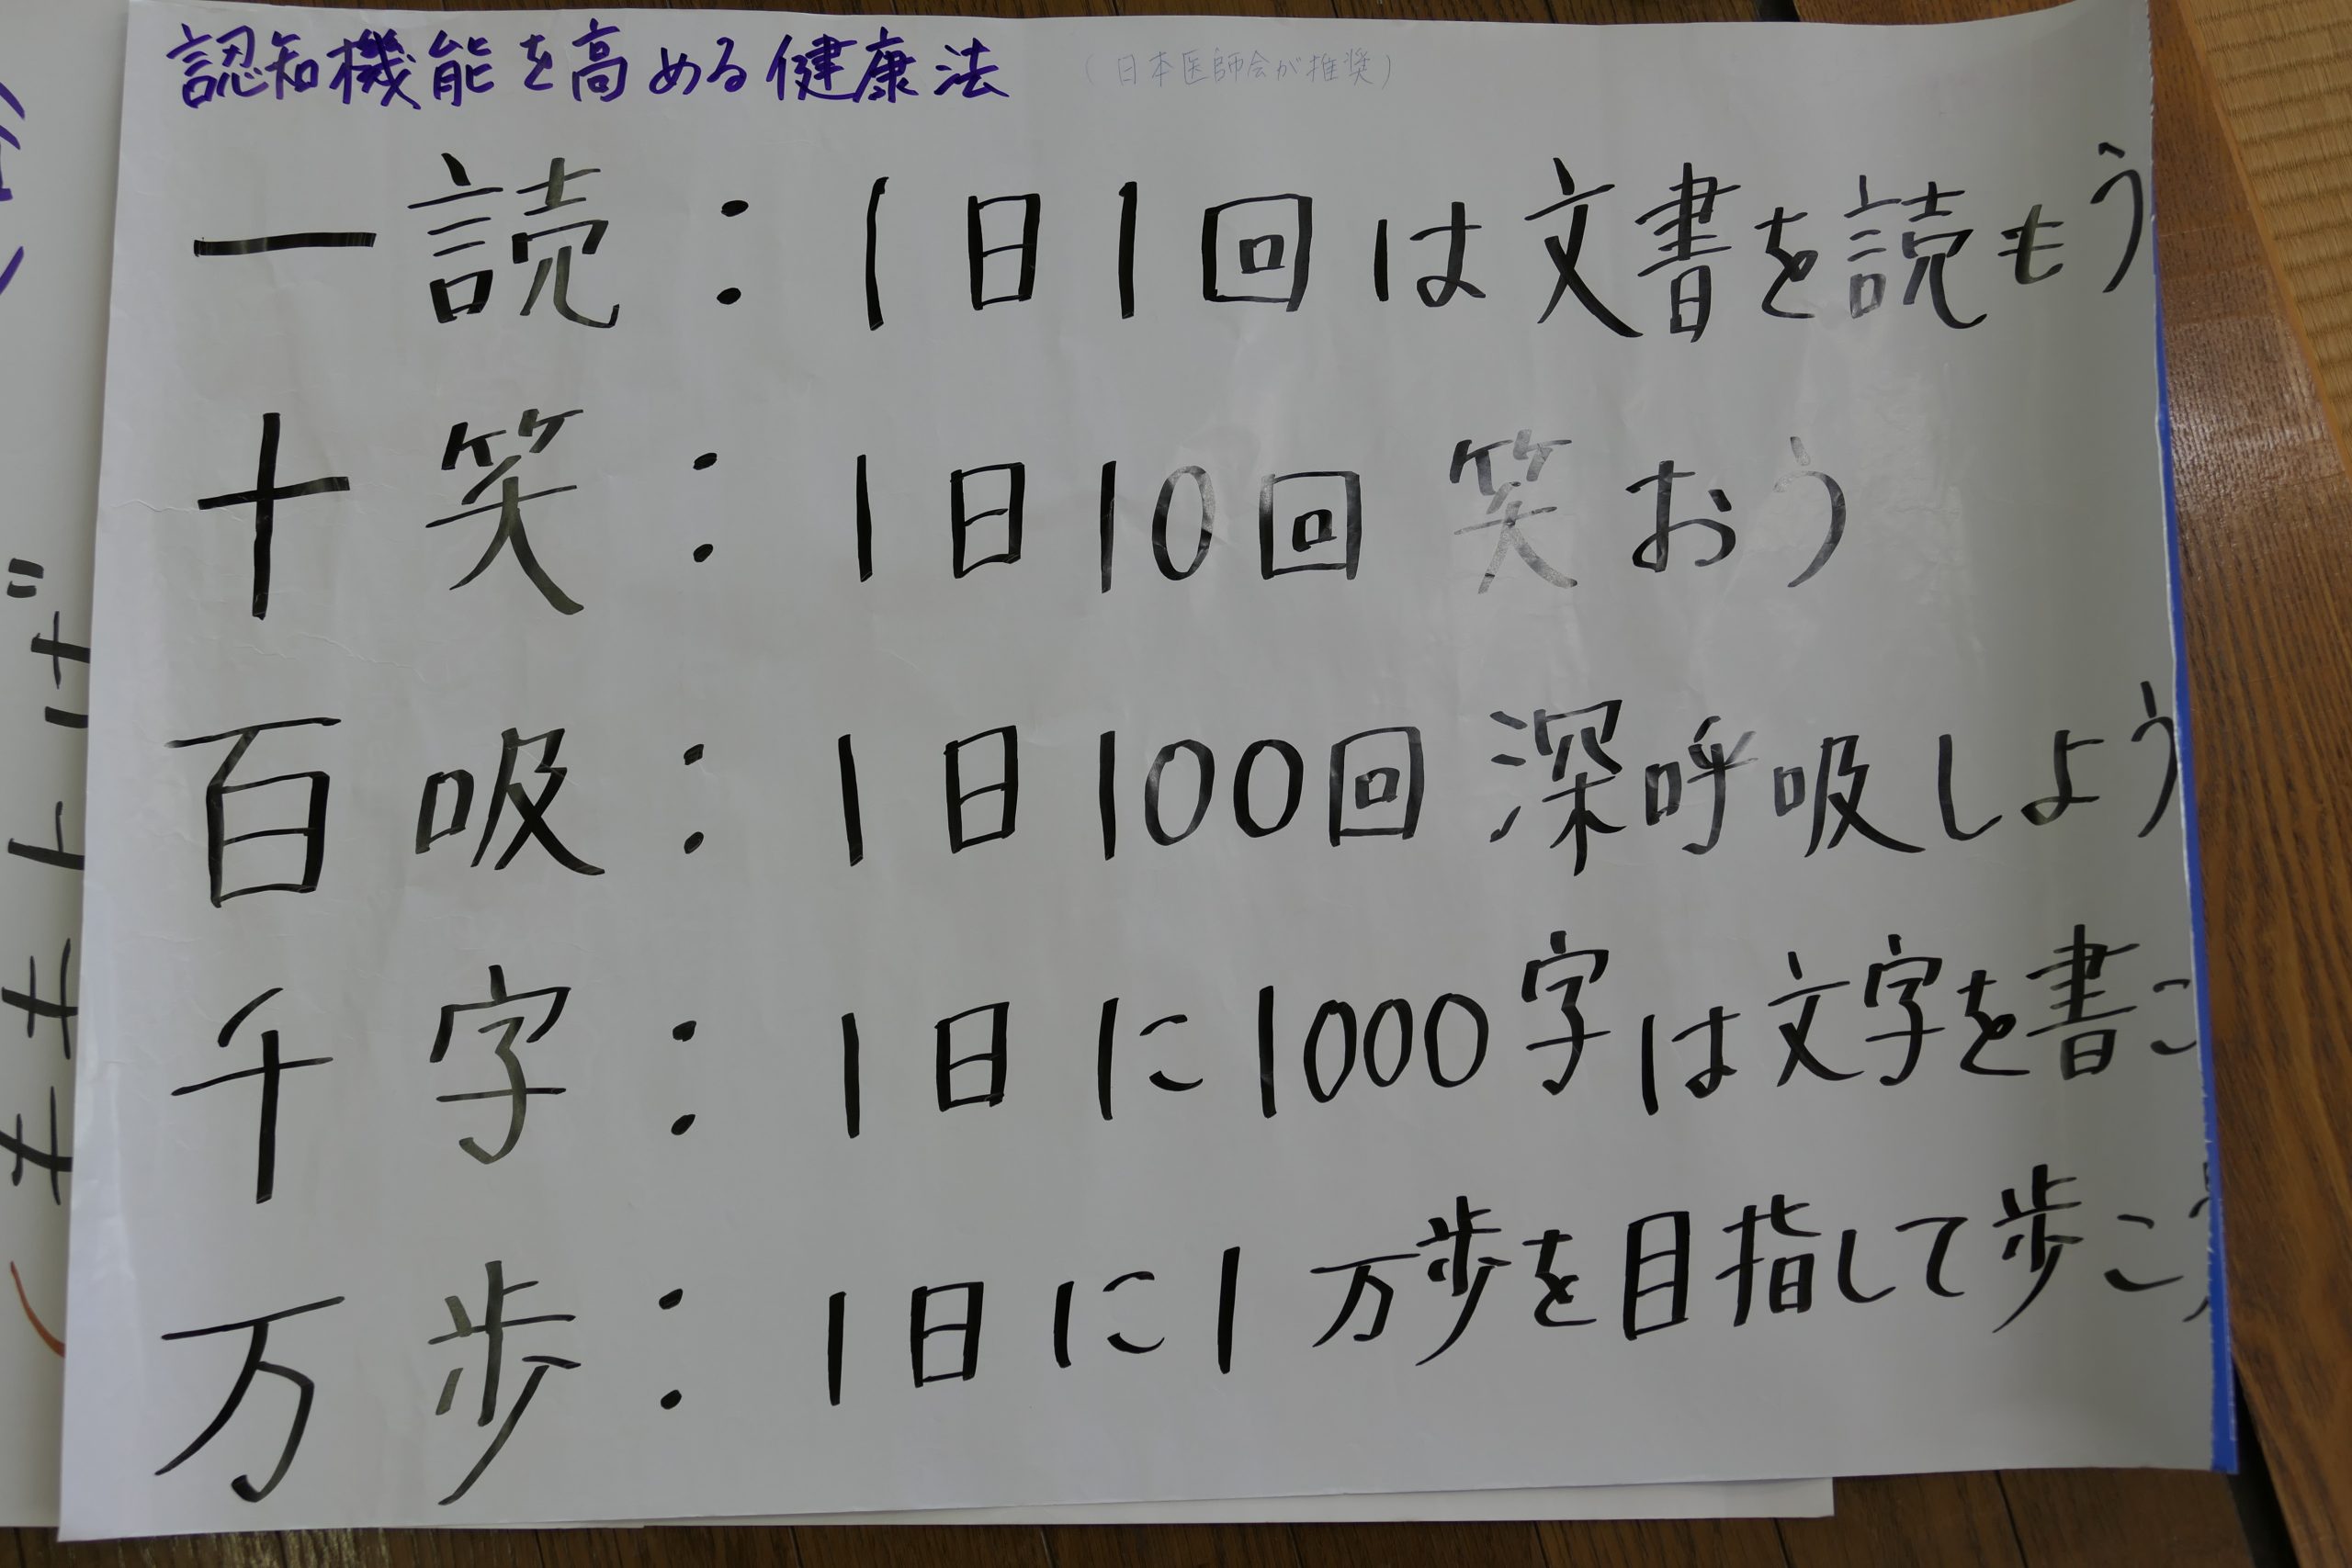 認知機能を高める健康法 (日本医師会が推奨)
一読：1日1回は文書を読もう
十笑：1日10回笑おう
百吸：1日100回深呼吸しよう
千字：1日に1000字は文字を書こ
万歩：1日に1万歩を目指して歩こう